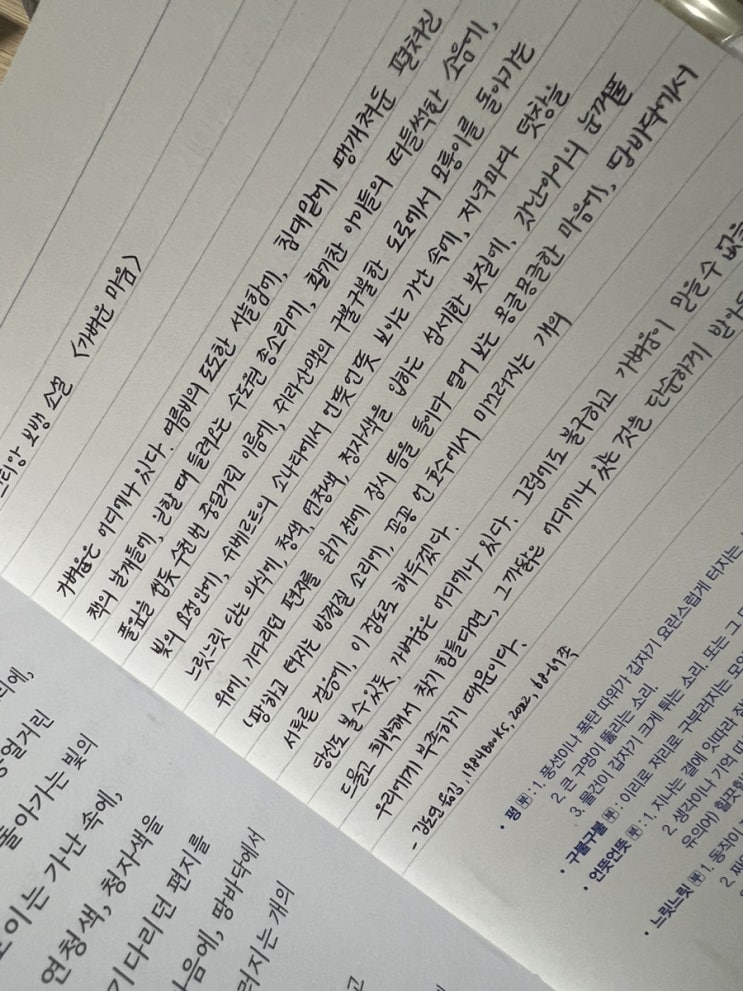 스티앙 보뱅 소설 〈가벼운 마음〉
가벼움은 어디에나 있다. 여름비의 도도한 서늘함에, 침대맡에 팽개쳐둔 펼쳐진
책의 날개들에, 일할 때 들려오는 수도원 종소리에, 활기찬 아이들의 떠들썩한 소음에,
풀잎을 씹듯 수천 번 중얼거린 이름에, 쥐라산맥의 구불구불한 도로에서 모퉁이를 돌아가는
빛의 요정 안에, 슈베르트의 소나타에서 언뜻언뜻 보이는 가난 속에, 저녁마다 덧창을
느릿느릿 닫는 의식에, 청색, 연청색, 청자색을 입히는 섬세한 붓질에, 갓난아이의 눈꺼풀
위에, 기다리던 편지를 읽기 전에 잠시 뜸을 들이다 열어 보는 몽글몽글한 마음에, 땅바닥에서
'팡'하고 터지는 밤껍질 소리에, 꽁꽁 언 호수에서 미끄러지는 개의
서투른 걸음에, 이 정도로 해두겠다.
당신도 볼 수 있듯, 가벼움은 어디에나 있다. 그럼에도 불구하고 가벼움이 믿을 수 없을
드물고 희박해서 찾기 힘들다면, 그 까닭은 어디에나 있는 것을 단순하게 받아들
우리에게 부족하기 때문이다.
- 김도연 옮김, 1984BOOKS, 2022, 68-69쪽
• 펑 [부]: 1. 풍선이나 폭탄 따위가 갑자기 요란스럽게 터지는
2. 큰 구멍이 뚫리는 소리.
3. 물건이 갑자기 크게 튀는 소리. 또는 그
• 구불구불 [부]: 이리로 저리로 구부러지는 모양
• 언뜻언뜻 [부]: 1. 지나는 결에 잇따라
2. 생각이나 기억
유의어)
• 느릿느릿 [부]: 1. 동작이
2.
리에,
중얼거린
돌아가는 빛의
보이는 가난 속에,
연청색, 청자색을
기다리던 편지를
마음에, 땅바닥에서
러지는 개의
고